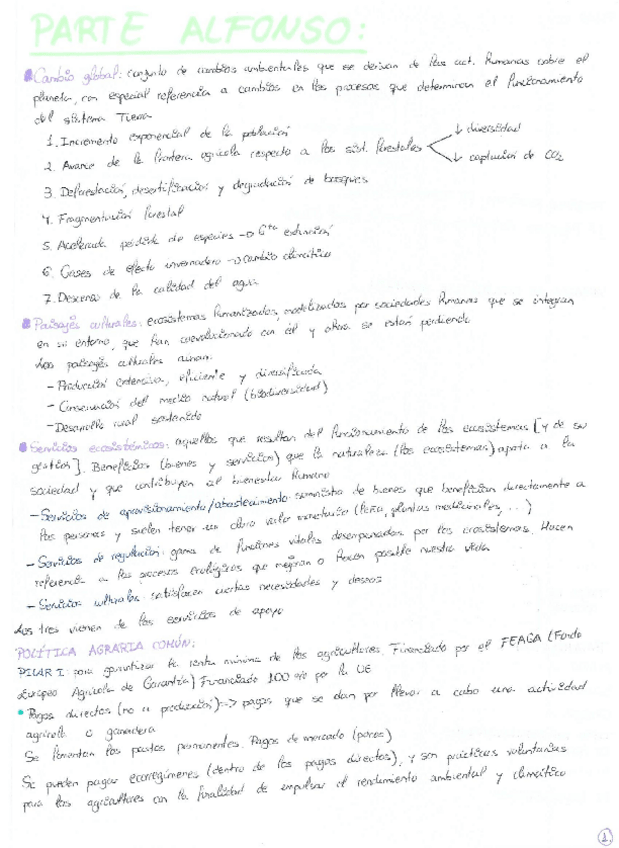 PARTE ALFONSO:
Cambio global: conjunto de cambios ambientales que se derivan de las act. humanas sobre el
planeta, con especial referencia a cambios en los procesos que determinan el funcionamiento
del sistema Tierra
1. Incremento exponencial de la población
2. Avance de la frontera agrícola respecto a los sist. forestales ↓ diversidad
↓ captación de CO2
3. Deforestación, desertificación y degradación de bosques
4. Fragmentación forestal
5. Acelerada pérdida de especies → 6ta extinción
6. Gases de efecto invernadero → cambio climático
7. Descenso de la calidad del agua
Paisajes culturales: ecosistemas humanizados, modelizados por sociedades humanas que se integran
en su entorno, que han coevolucionado con él y ahora se están perdiendo
Los paisajes culturales aunan:
- Producción extensiva, eficiente y diversificada
- Conservación del medio natural (biodiversidad)
- Desarrollo rural sostenido
Servicios ecosistémicos: aquellos que resultan del funcionamiento de los ecosistemas [y de su
gestión]. Beneficios (bienes y servicios) que la naturaleza (los ecosistemas) aporta a la
sociedad y que contribuyen al bienestar humano
- Servicios de aprovisionamiento/abastecimiento: suministro de bienes que benefician directamente a
las personas y suelen tener un claro valor monetario (leña, plantas medicinales, ...)
- Servicios de regulación: gama de funciones vitales desempeñadas por los ecosistemas. Hacen
referencia a los procesos ecológicos que mejoran o hacen posible nuestra vida
- Servicios culturales: satisfacen ciertas necesidades y deseos
Los tres vienen de los servicios de apoyo
POLÍTICA AGRARIA COMÚN:
PILAR I: para garantizar la renta mínima de los agricultores. Financiado por el FEAGA (Fondo
Europeo Agrícola de Garantía) Financiado 100% por la UE
Pagos directos (no a producción) => pagos que se dan por llevar a cabo una actividad
agrícola o ganadera
Se fomentan los pastos permanentes. Pagos de mercado (pocos)
Se pueden pagar ecorregímenes (dentro de los pagos directos), y son prácticas voluntarias
para los agricultores con la finalidad de impulsar el rendimiento ambiental y climático
1.